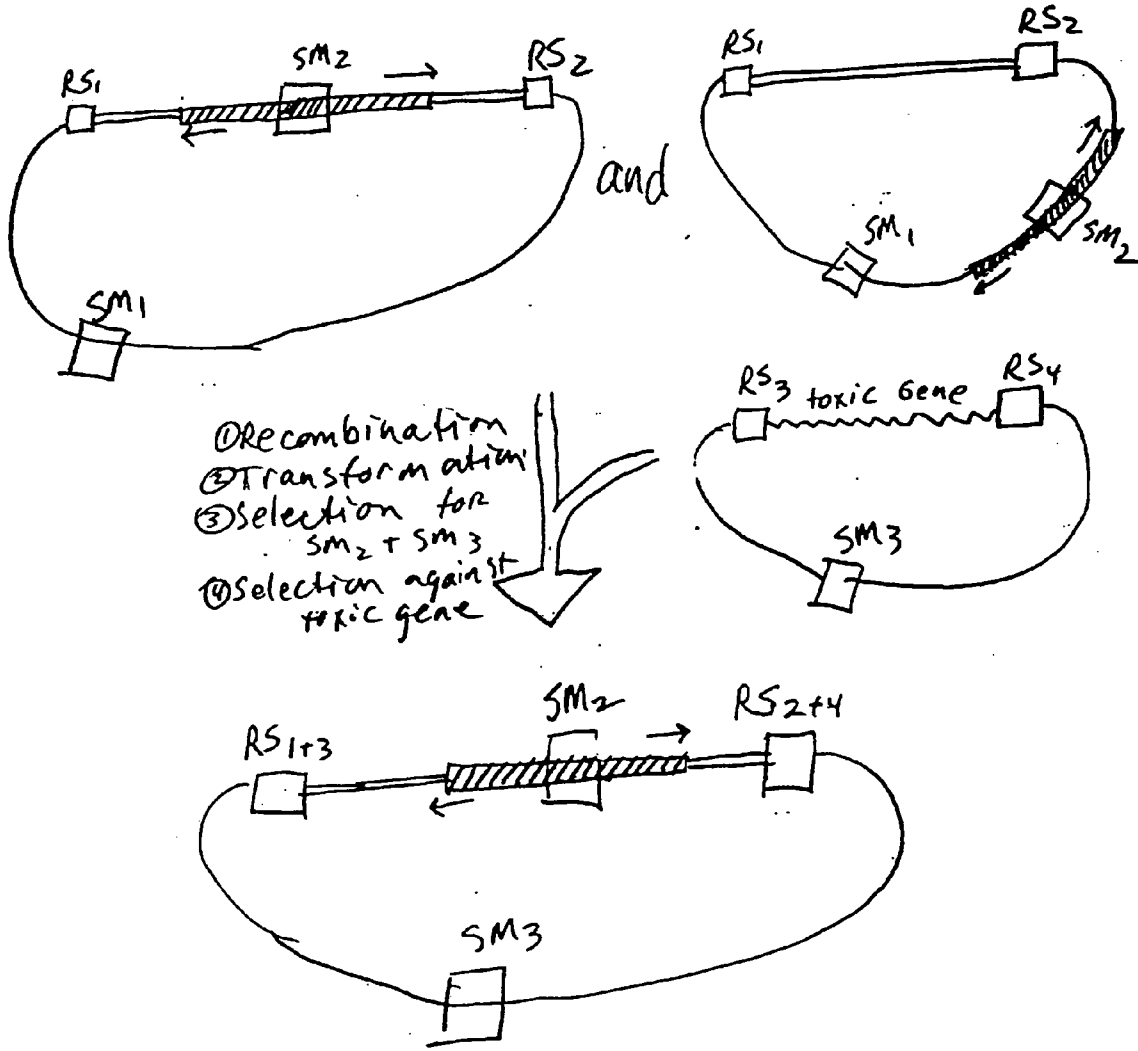 RS1
SM2
RS2
SM1
and
RS1
RS2
SM1
SM2
①Recombination
②Transformation
③Selection for
SM2 + SM3
④Selection against
toxic gene
RS3 toxic Gene RS4
SM3
RS1+3
SM2
RS2+4
SM3